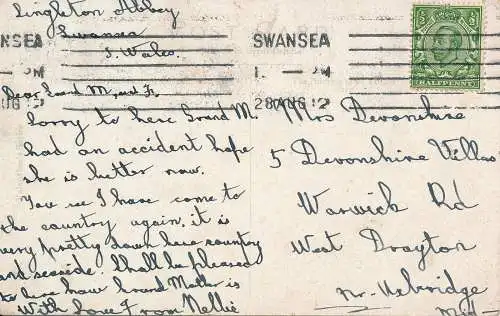 Singleton Abbey
Swansea
S. Wales.
Dear Grand M, and F,
Sorry to here Grand M.
had an accident hope
she is better now.
You see I have come to
the country again, it is
very pretty down here country
and seaside. Shall be pleased
to here how Grand Mother is
With Love From Nellie
SWANSEA
PM
AUG 12
SWANSEA
1 - PM
28 AUG 12
HALFPENNY
Mrs Devonshire
5 Devonshire Villas
Warwick Rd
West Drayton
Nr. Uxbridge
Mid-